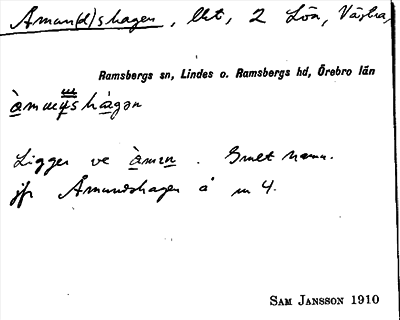 Åman(d)shagen, lht, 2 Lön, Västra,
Ramsbergs sn, Lindes o. Ramsbergs hd, Örebro län
Ligger ve åmen. Smet namn.
jfr Åmundshagen å n 4.
SAM JANSSON 1910